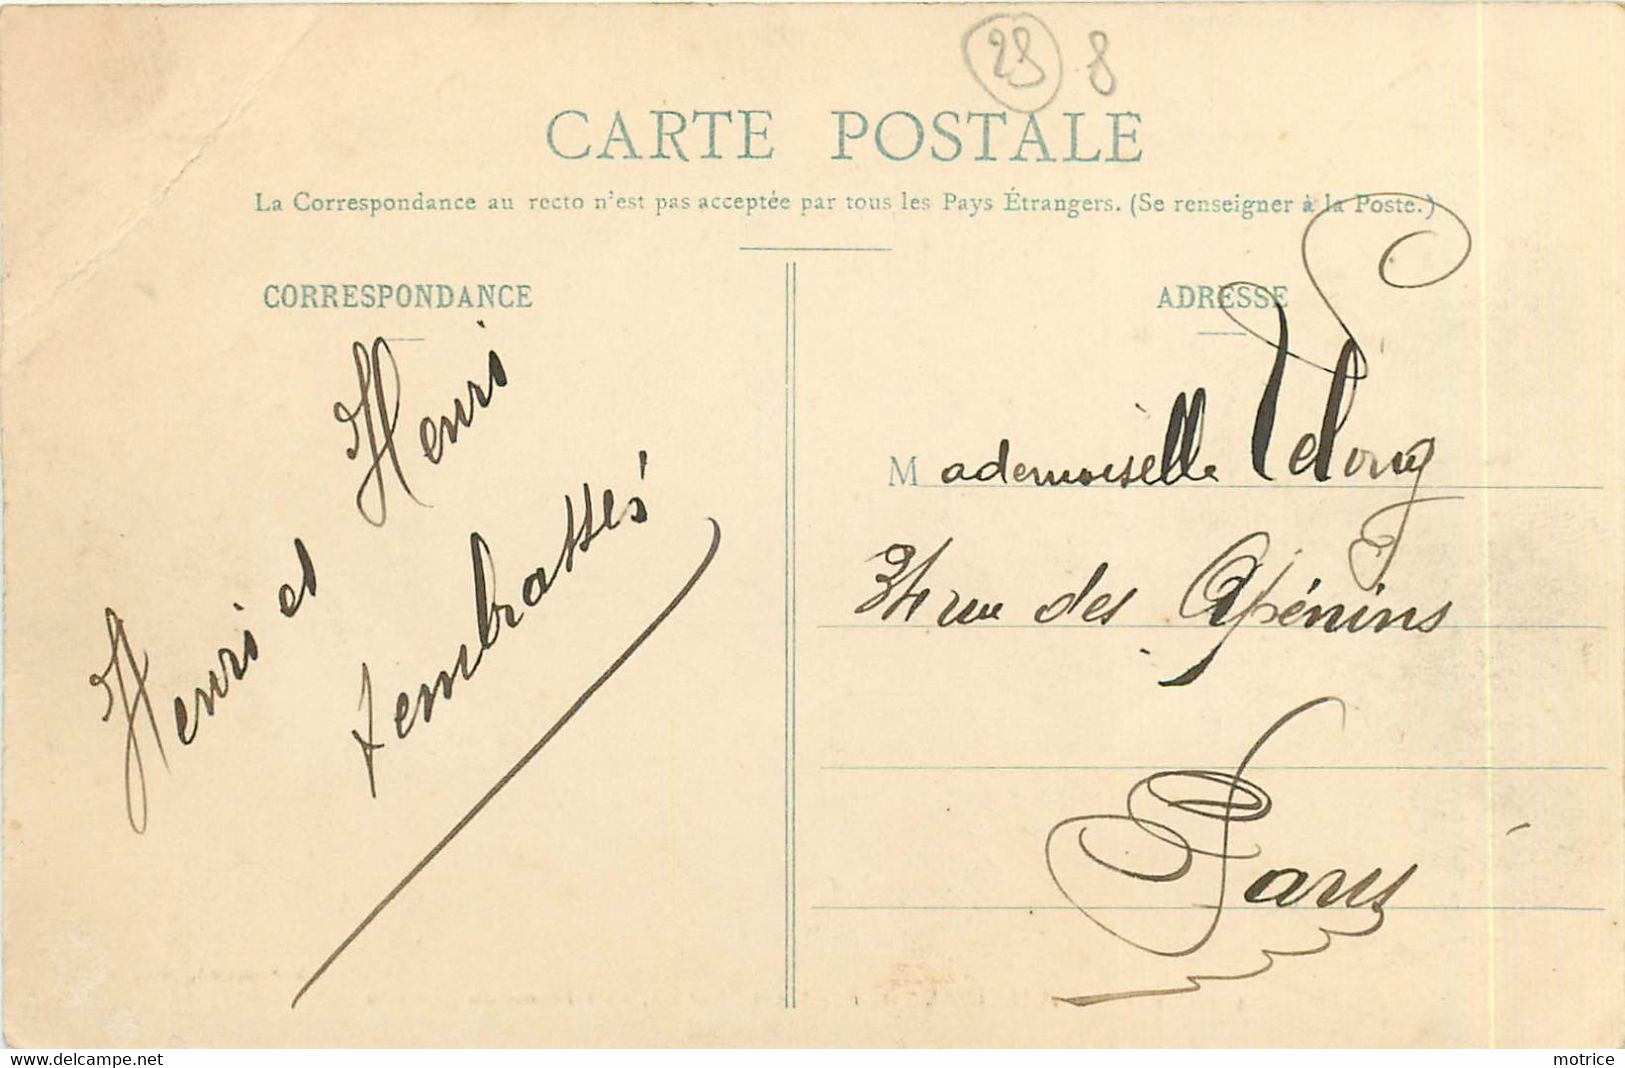 28 8
CARTE POSTALE
La Correspondance au recto n'est pas acceptée par tous les Pays Étrangers. (Se renseigner à la Poste.)
CORRESPONDANCE
Henri et Henri
tembrasses
ADRESSE
Mademoiselle Lelong
34 rue des Apénins
Paris
www.delcampe.net
motrice